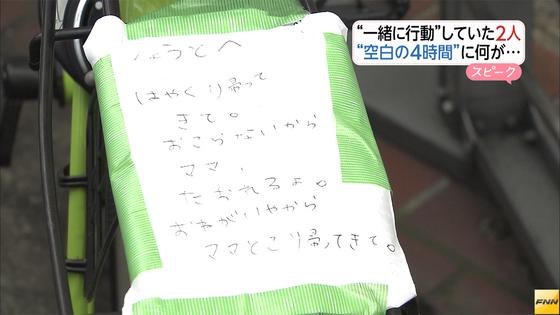 “一緒に行動”していた2人
“空白の4時間”に何が…
スピーク
りょうとへ
はやくり帰って
きて。
おこらないから
ママ、
たおれるよ。
おねがいやから
ママとこり帰ってきて。
FNN